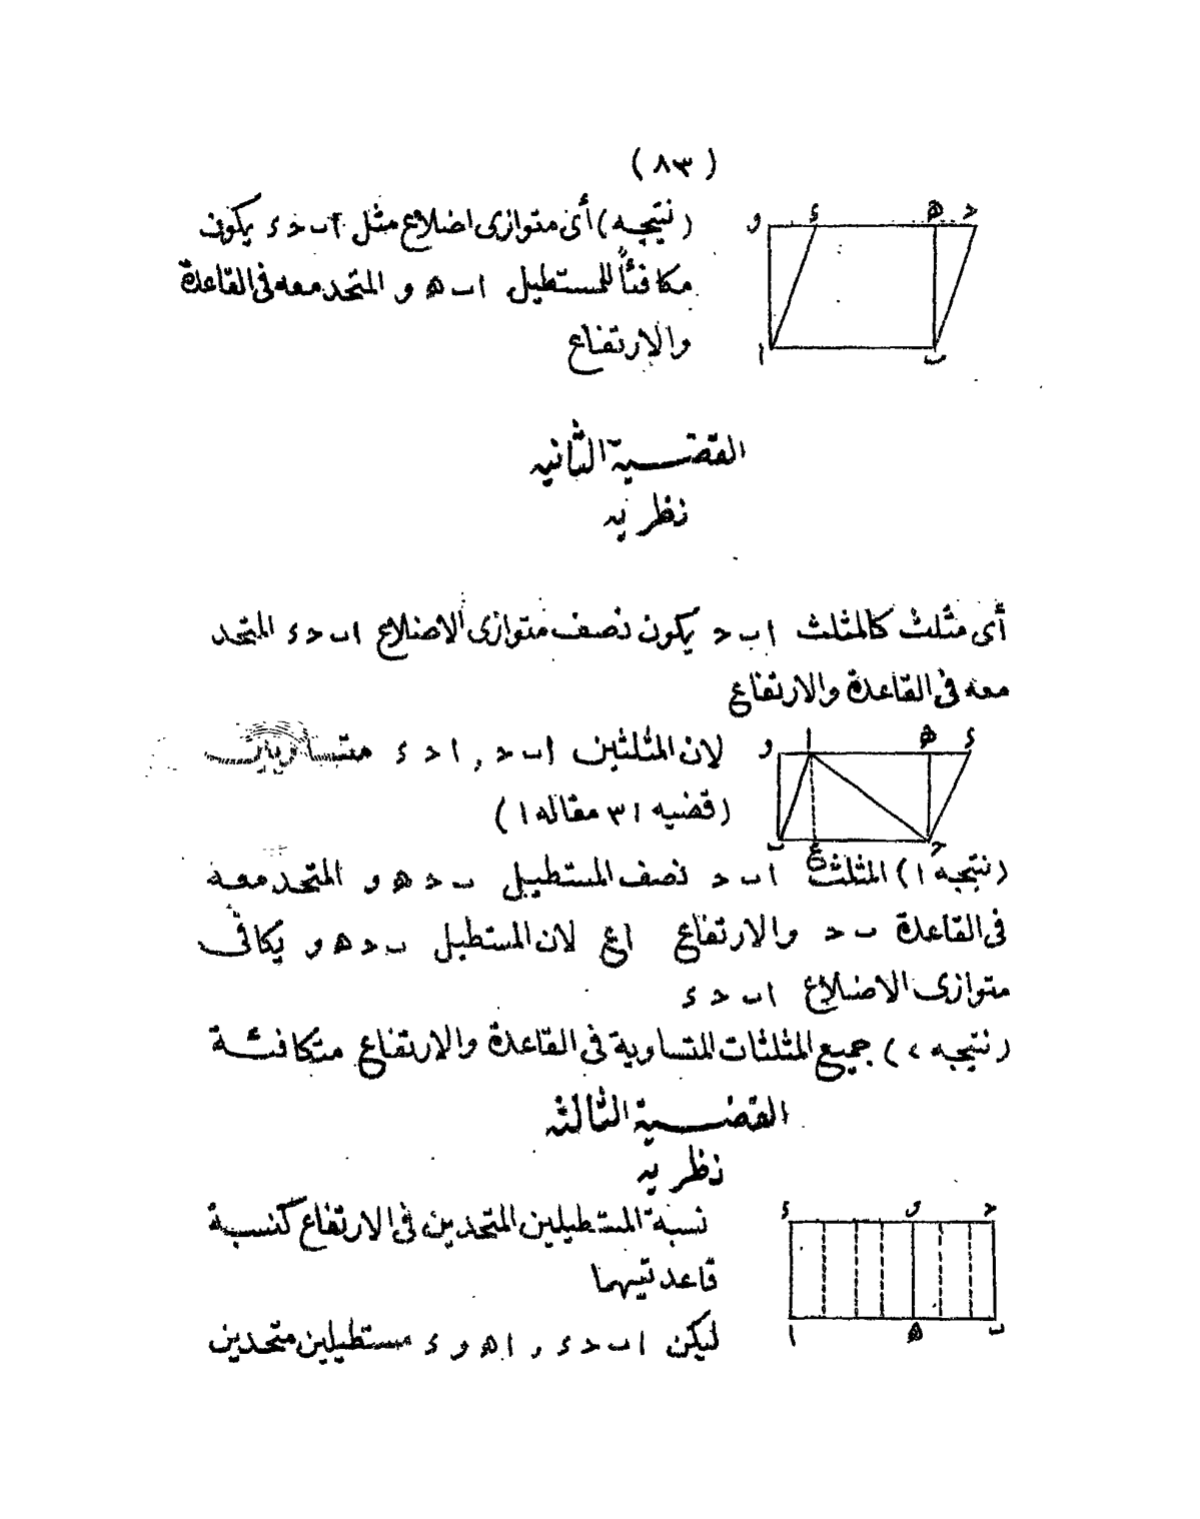 ( ٨٣ )
(نتيجه) أى متوازى اضلاع مثل ا ب ح ء يكون
مكافئاً للمستطيل ا ب ه و المتحد معه فى القاعدة
والارتفاع
و ء ه ح
ا ب
القضية الثانيه
نظريه
أى مثلث كالمثلث ا ب ح يكون نصف متوازى الاضلاع ا ب ح ء المتحد
معه فى القاعدة والارتفاع
لان المثلثين ا ب ح , ا ح ء متساويان
(قضيه ٣١ مقاله ١)
و ا ه ء
ب ع ح
(نتيجه ١) المثلث ا ب ح نصف المستطيل ب ح ه و المتحد معه
فى القاعدة ب ح والارتفاع ا ع لان المستطيل ب ح ه و يكافى
متوازى الاضلاع ا ب ح ء
(نتيجه ٢) جميع المثلثات المتساوية فى القاعدة والارتفاع متكافئة
القضية الثالثه
نظريه
نسبة المستطيلين المتحدين فى الارتفاع كنسبة
قاعدتيهما
ليكن ا ب ح ء , ا ه و ء مستطيلين متحدين
ء و ح
ا ه ب